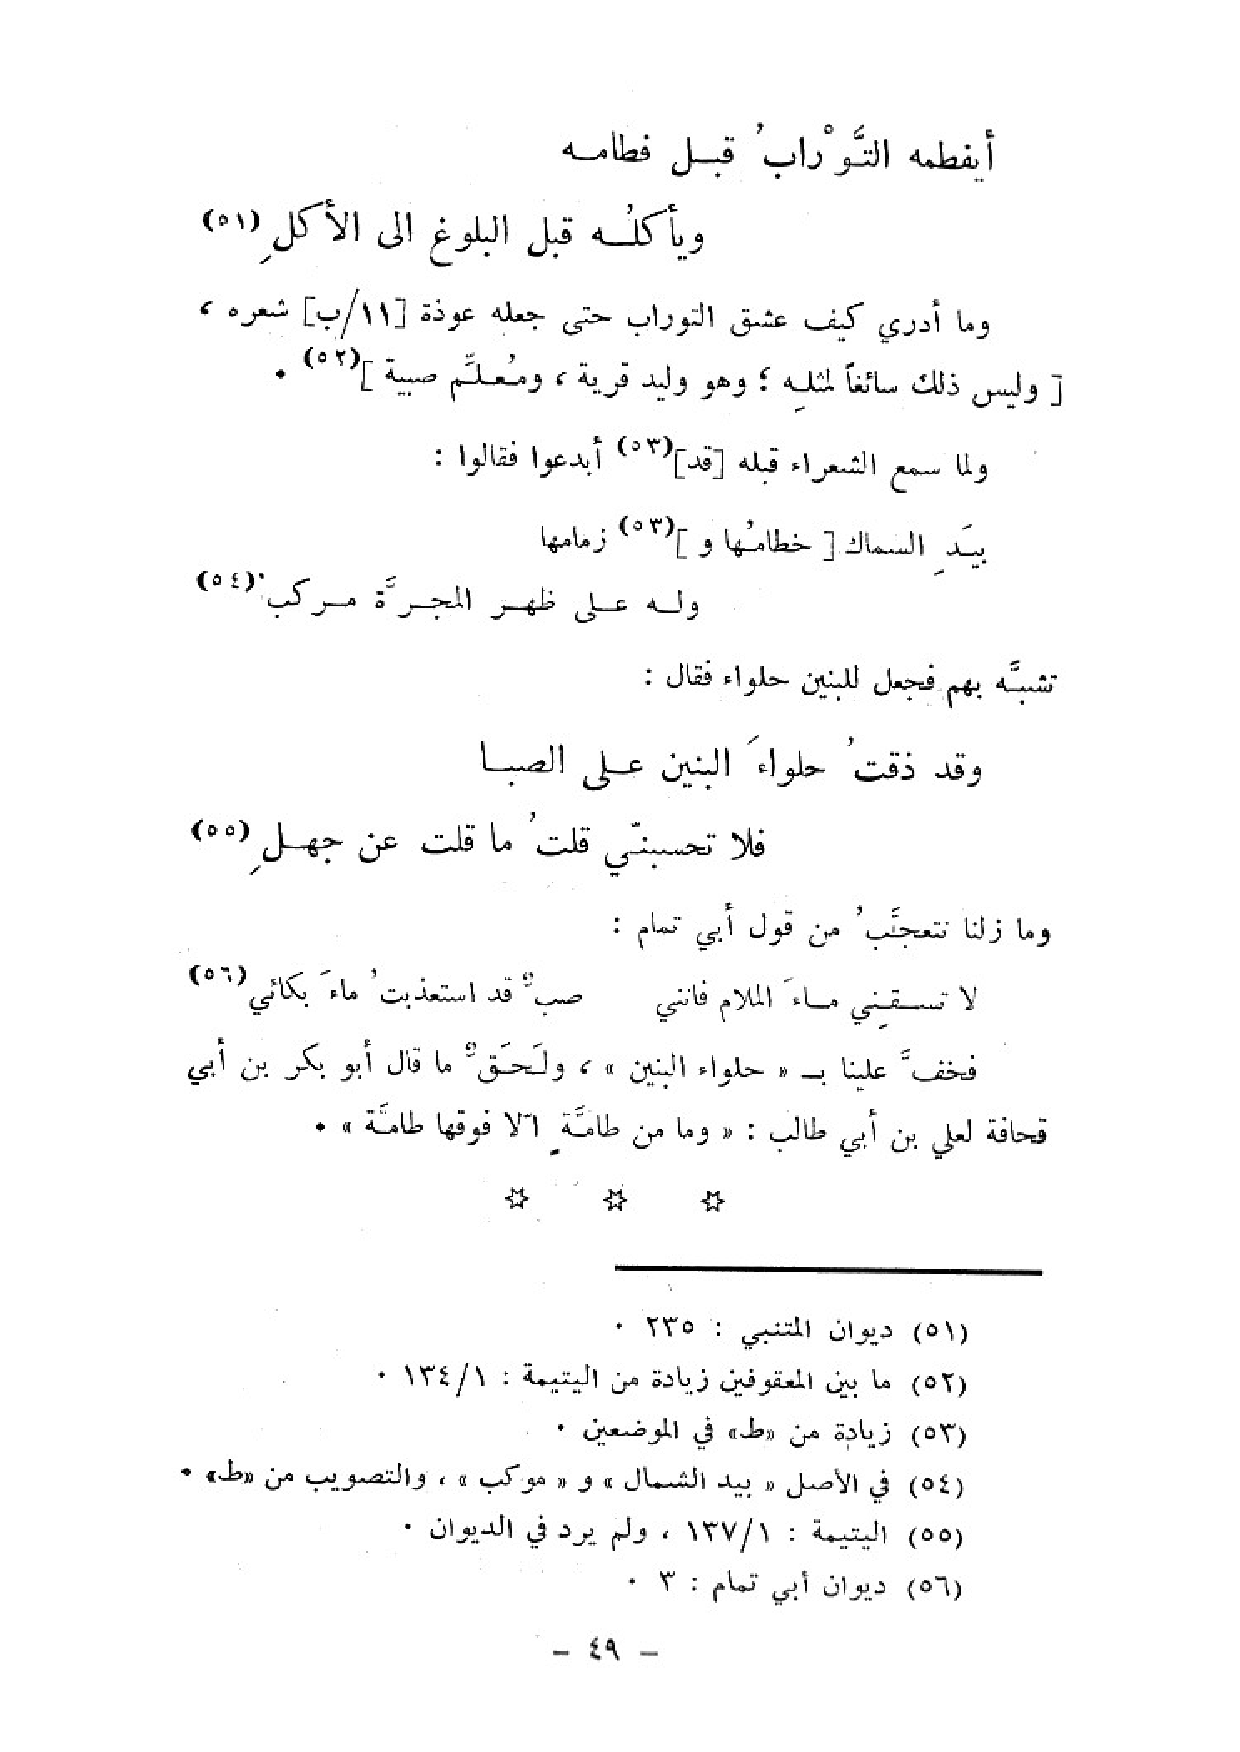 أيفطمه التَّوْرابُ قبل فطامه
ويأكلُه قبل البلوغ الى الأكلِ (٥١)
وما أدري كيف عشق التوراب حتى جعله عوذة [١١/ب] شعره ،
[ وليس ذلك سائغاً لمثلِه ؛ وهو وليد قرية ، ومُعلِّم صبية ](٥٢) ٠
ولما سمع الشعراء قبله [قد](٥٣) أبدعوا فقالوا :
بيَدِ السماك [ خطامُها و ](٥٣) زمامها
وله على ظهر المجرَّة مركبُ (٥٤)
تشبَّه بهم فجعل للبنين حلواء فقال :
وقد ذقتُ حلواءَ البنين على الصبا
فلا تحسبنّي قلتُ ما قلت عن جهلِ (٥٥)
وما زلنا نتعجَّبُ من قول أبي تمام :
لا تسقِني ماءَ الملام فانني صبٌّ قد استعذبتُ ماءَ بكائي (٥٦)
فخفَّ علينا بـ « حلواء البنين » ، ولَحَقٌّ ما قال أبو بكر بن أبي
قحافة لعلي بن أبي طالب : « وما من طامَّةٍ الّا فوقها طامَّة » ٠
(٥١) ديوان المتنبي : ٢٣٥ ٠
(٥٢) ما بين المعقوفين زيادة من اليتيمة : ١٣٤/١ ٠
(٥٣) زيادة من «ط» في الموضعين ٠
(٥٤) في الأصل « بيد الشمال » و « موكب » ، والتصويب من «ط» ٠
(٥٥) اليتيمة : ١٣٧/١ ، ولم يرد في الديوان ٠
(٥٦) ديوان أبي تمام : ٣ ٠
– ٤٩ –